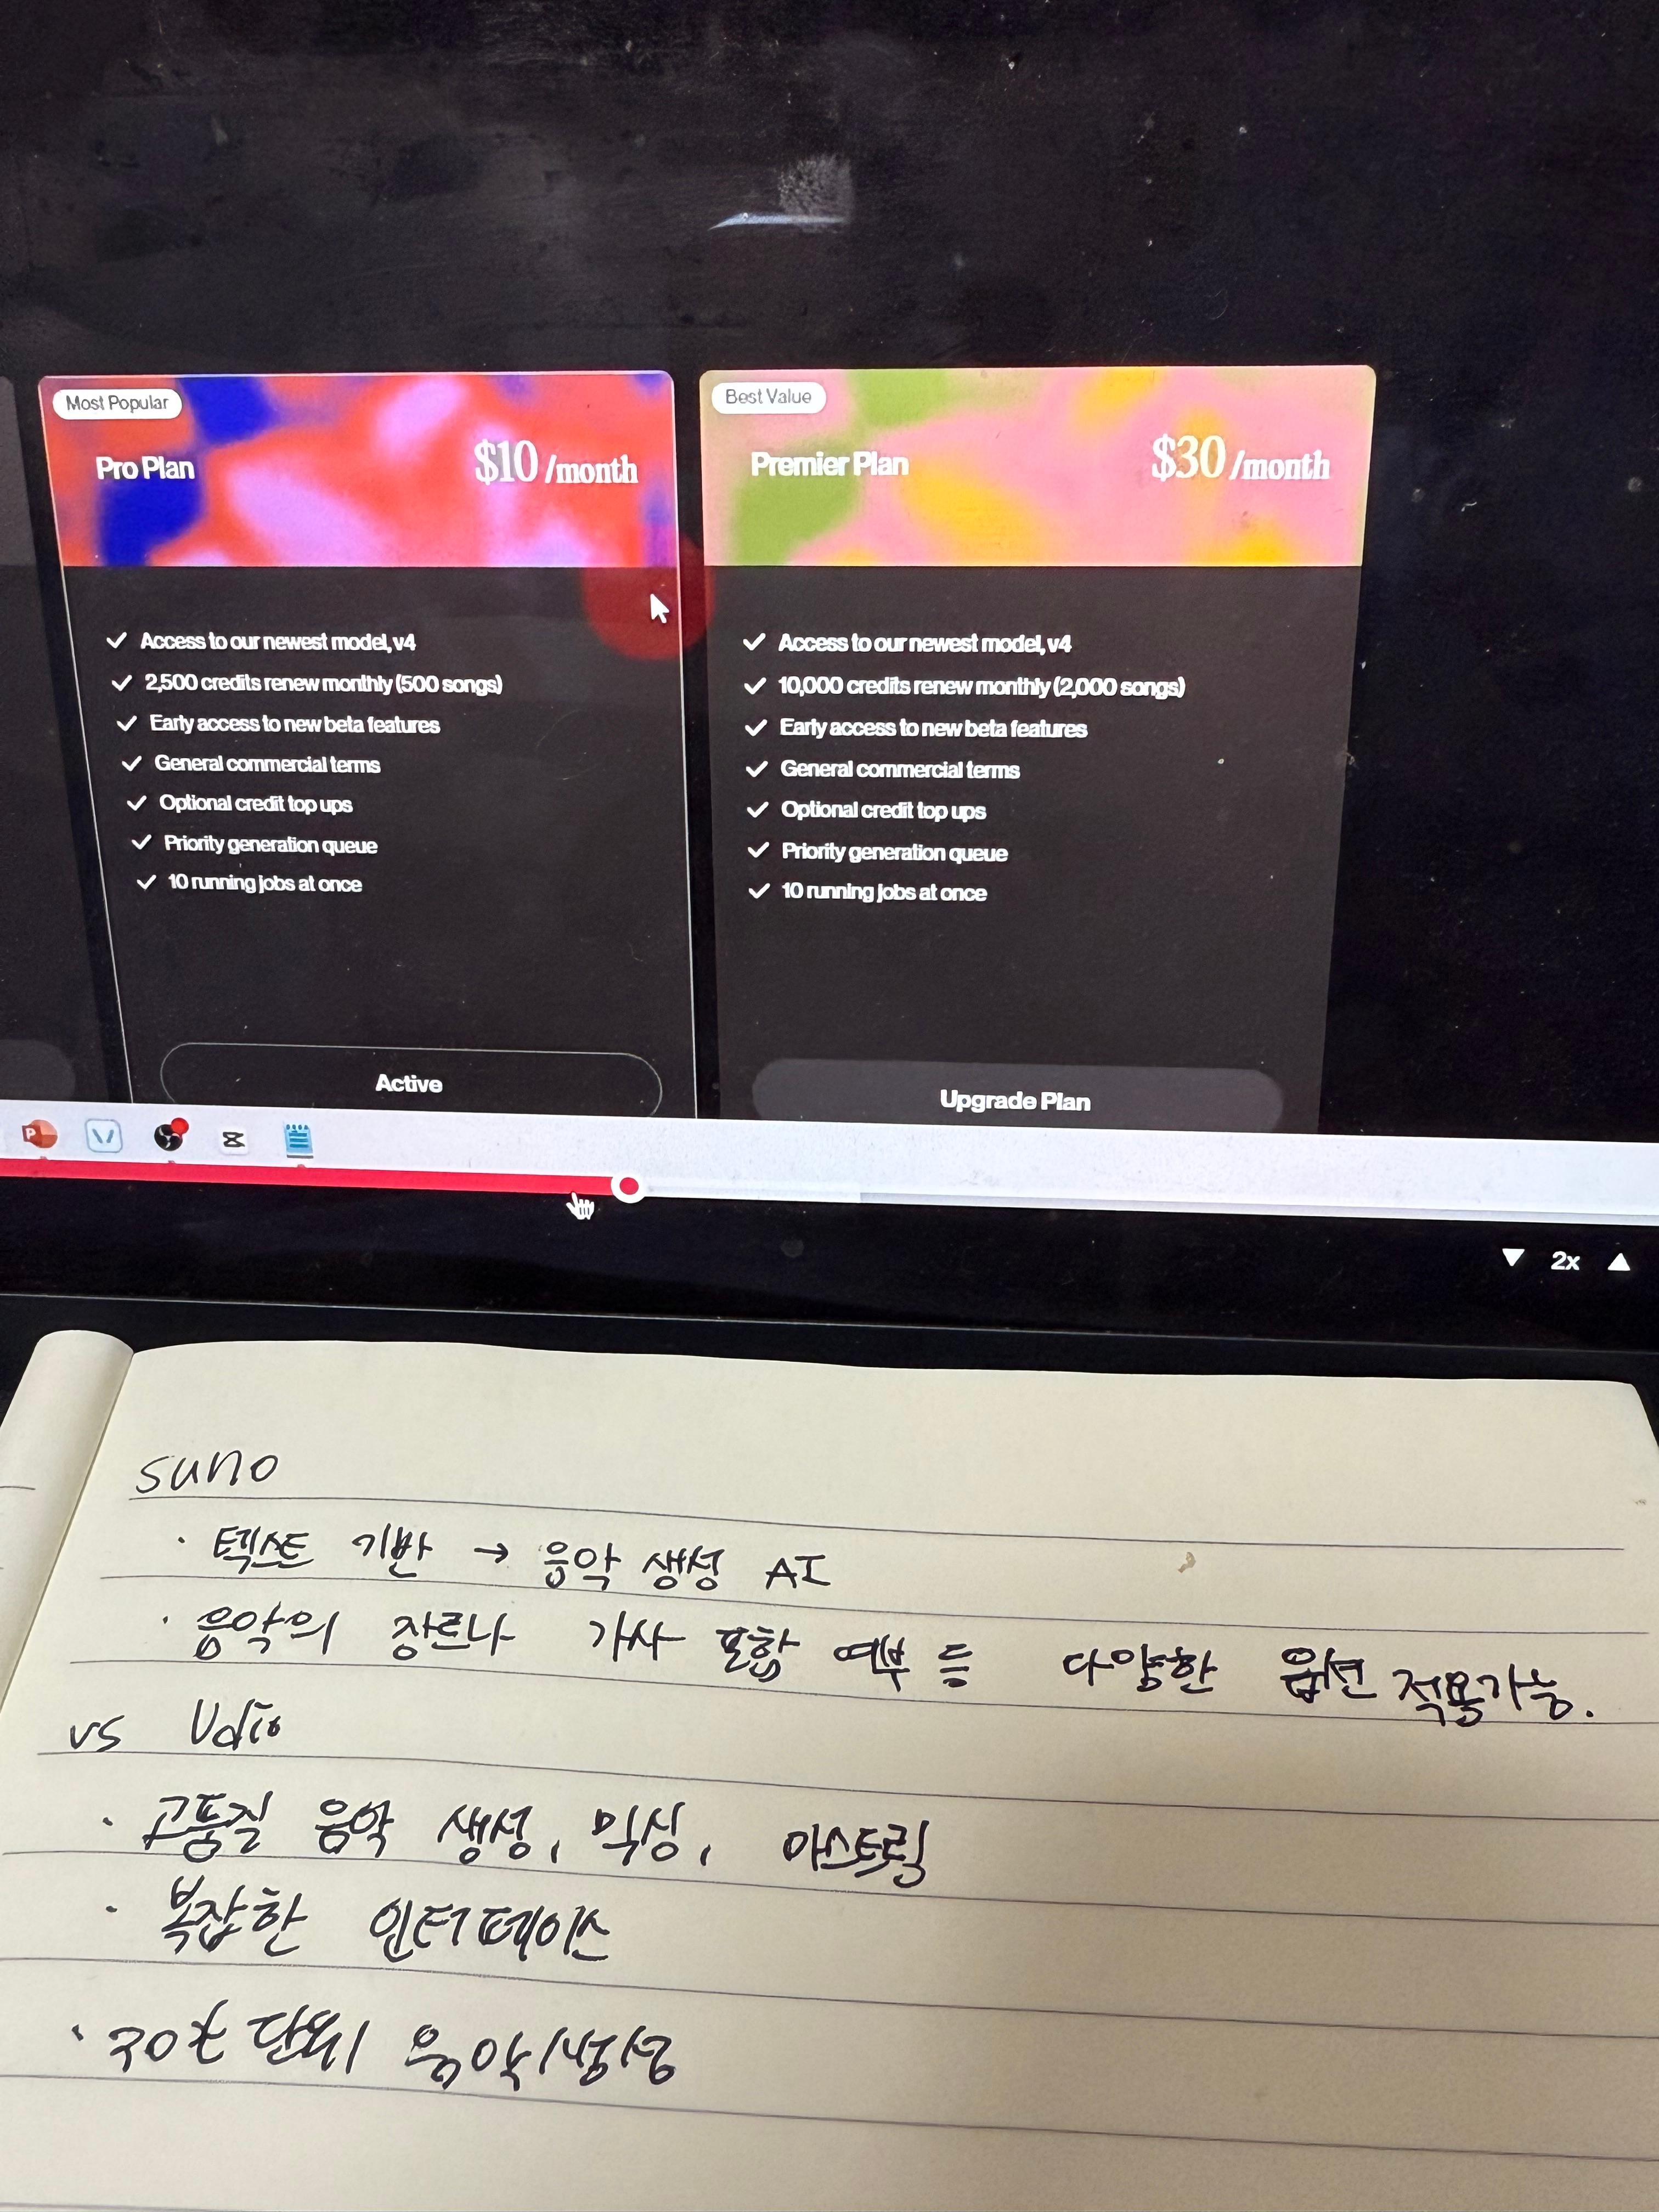 Most Popular
Pro Plan
$10 /month
Access to our newest model, v4
2,500 credits renew monthly (500 songs)
Early access to new beta features
General commercial terms
Optional credit top ups
Priority generation queue
10 running jobs at once
Active
Best Value
Premier Plan
$30 /month
Access to our newest model, v4
10,000 credits renew monthly (2,000 songs)
Early access to new beta features
General commercial terms
Optional credit top ups
Priority generation queue
10 running jobs at once
Upgrade Plan
P
2x
suno
· 텍스트 기반 → 음악 생성 AI
· 음악의 장르나 가사 포함 여부 등 다양한 옵션 적용가능.
vs Udio
· 고품질 음악 생성, 믹싱, 마스터링
· 복잡한 인터페이스
· 30초 단위 음악생성